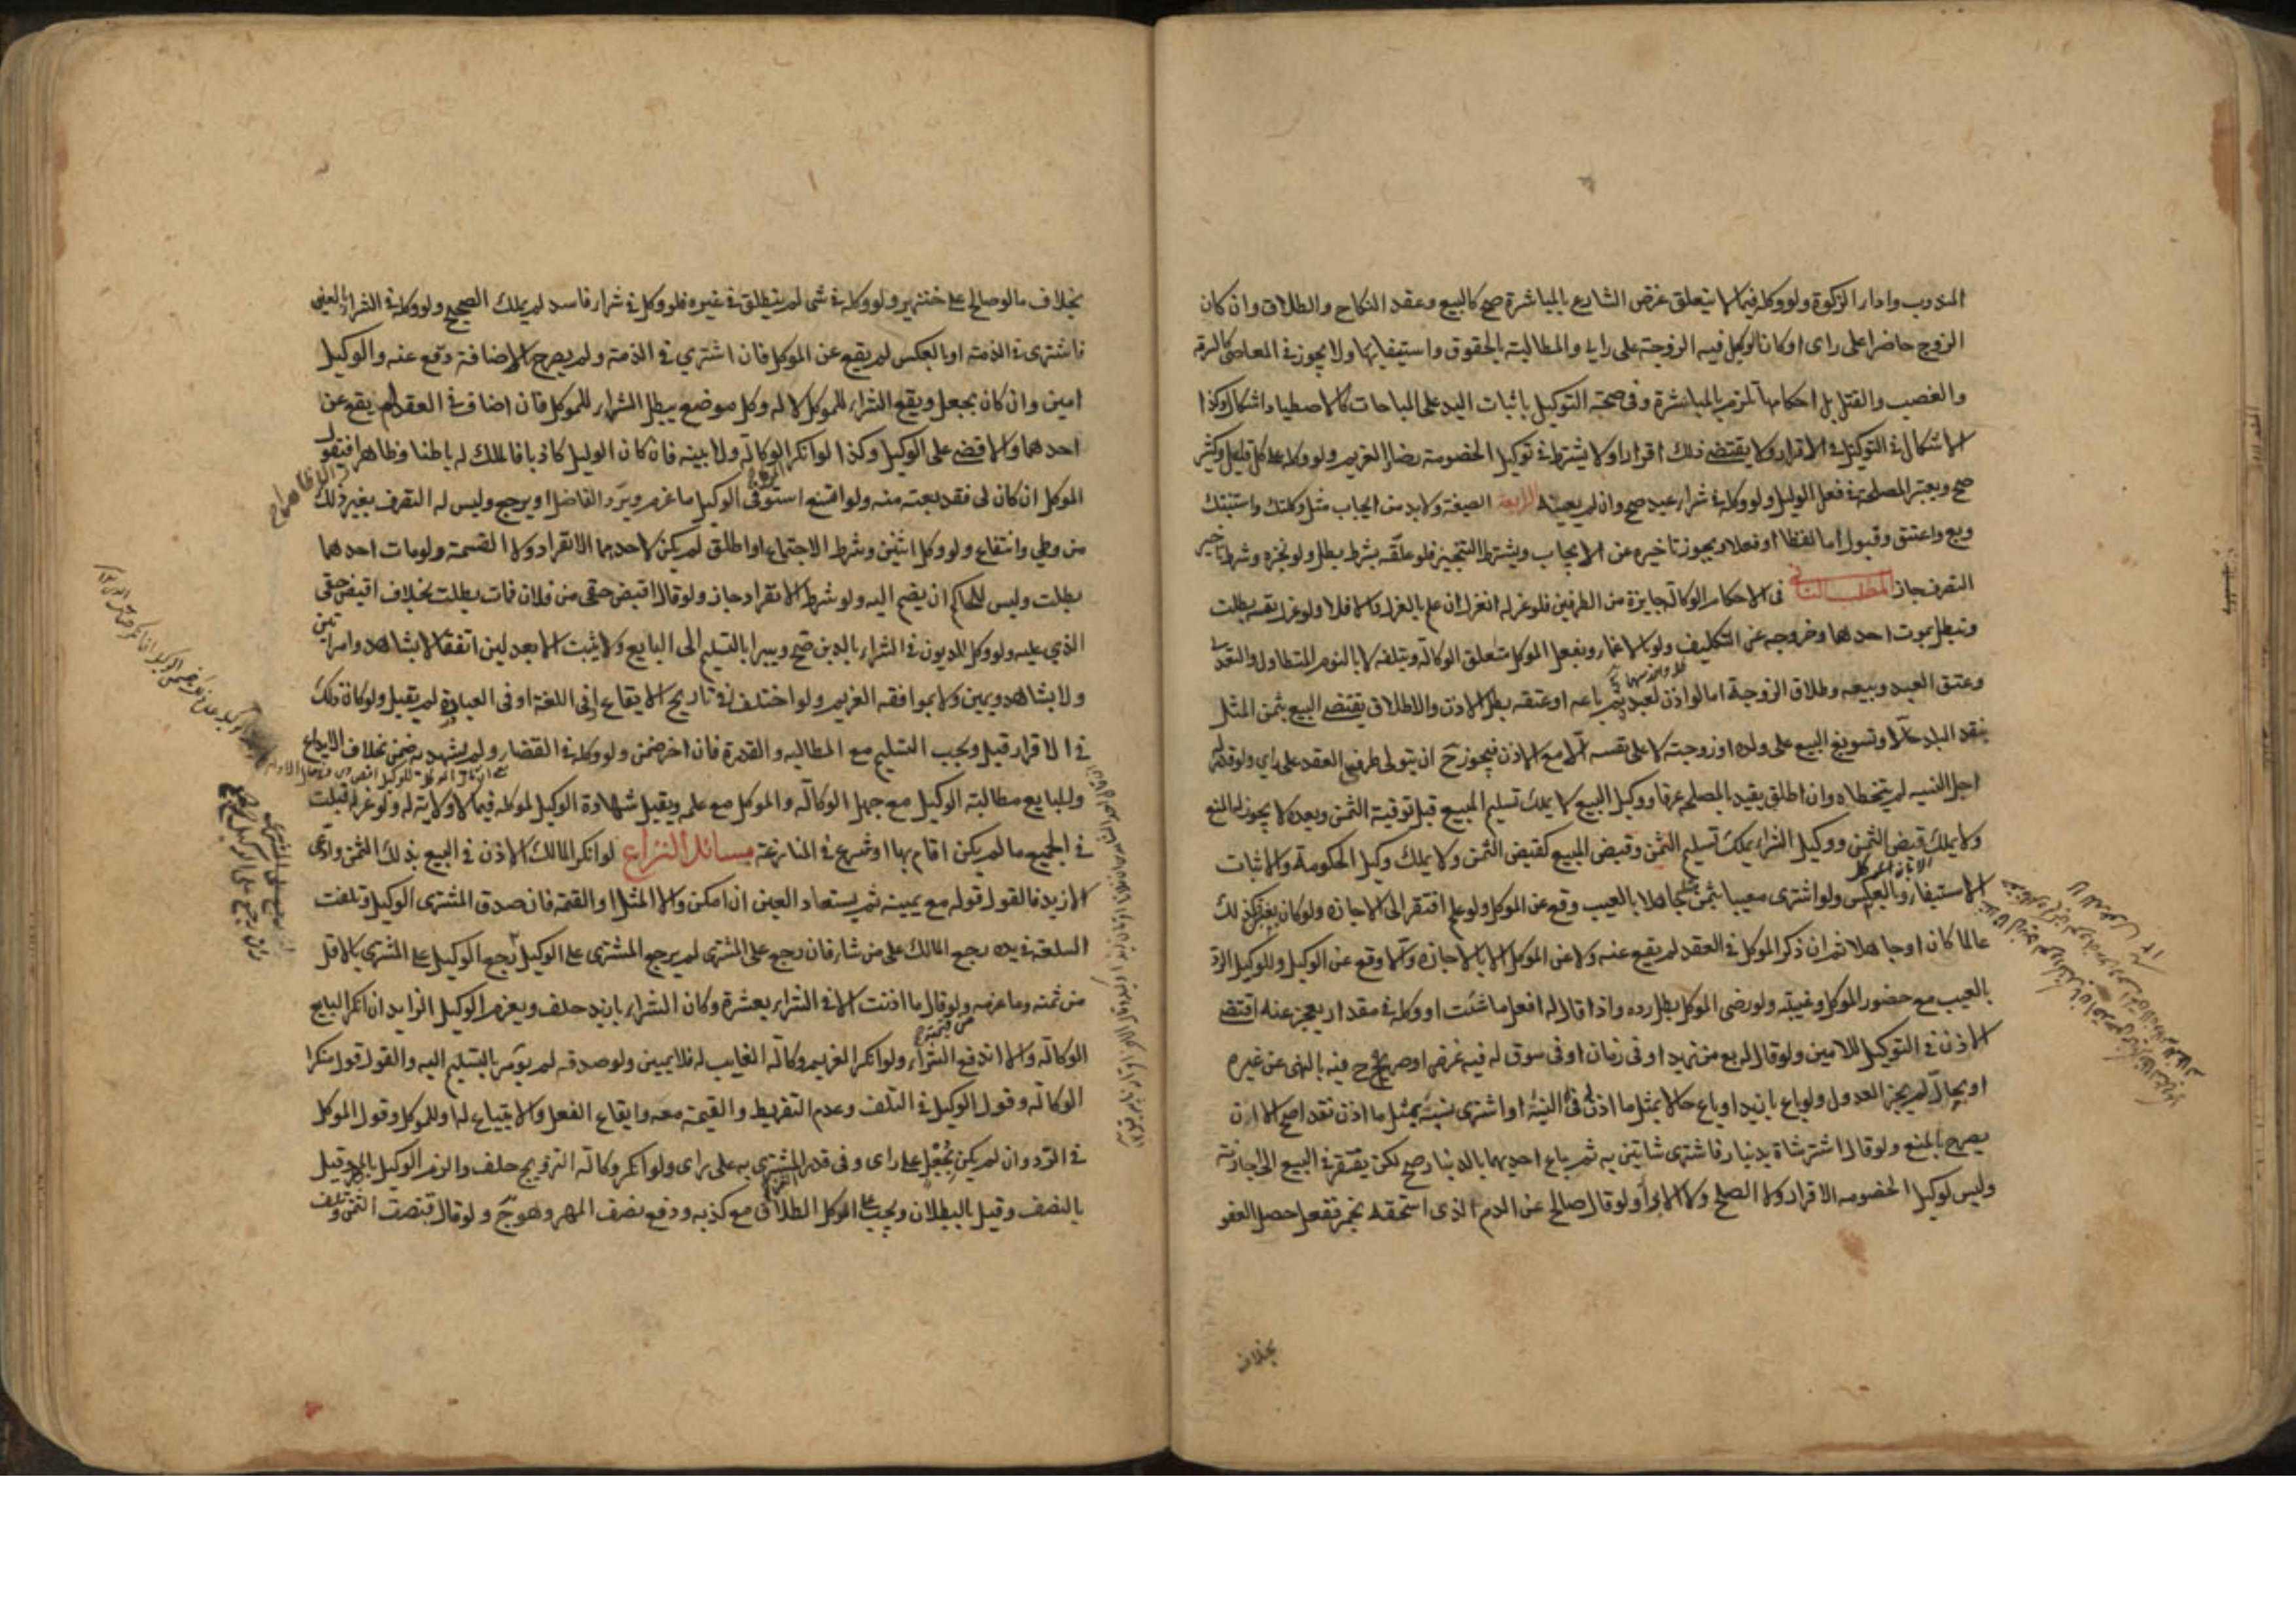 المنذوب واداء الزكوة ولو وكله فيما لا يتعلق غرض الشارع بالمباشرة صح كالبيع وعقد النكاح والطلاق وان كان
الزوج حاضرا على راى او كان الوكيل فيه الزوجة على راي والمطالبة بالحقوق واستيفائها ولا يجوز في المعاصى كالسرقة
والغصب والقتل بل احكامها تلزم بالمباشرة وفي صحة التوكيل باثبات اليد على المباحات كالاصطياد اشكال وكذا
الاشكال في التوكيل في الاقرار ولا يقتضي ذلك اقرارا ولا يشترط في توكيل الخصومة رضا الغريم ولو وكله على كل قليل وكثير
صح ويعتبر المصلحة في فعل الوكيل ولو وكله في شراء عبد صح وان لم يعينه الرابعة الصيغة ولابد من ايجاب مثل وكلتك واستنبتك
وبع واعتق وقبول اما لفظا او فعلا ويجوز تاخيره عن الايجاب ويشترط التنجيز فلو علقه بشرط بطل ولو نجزه وشرط تاخير
التصرف جاز المطلب الثاني فى الاحكام الوكالة جايزة من الطرفين فلو عزله انعزل ان علم بالعزل والا فلا ولو عزل نفسه بطلت
وتبطل بموت احدهما وخروجه عن التكليف ولو بالاغماء وبفعل الموكل متعلق الوكالة وبتلفه لا بالنوم المتطاول والتعدي
وعتق العبد وبيعه وطلاق الزوجة اما لو اذن لعبده ثم باعه او عتقه بطل الاذن والاطلاق يقتضي البيع بثمن المثل
بنقد البلد حالا وتسويغ البيع على ولده او زوجته لا على نفسه الا مع الاذن فيجوز ح ان يتولى طرفي العقد على راي ولو قدر له
اجل النسيه لم يتخطاه وان اطلق يقيد بالمصلحة عرفا ووكيل البيع لا يملك تسليم المبيع قبل توفية الثمن وبعده لا يجوز له المنع
ولا يملك قبض الثمن ووكيل الشراء يملك تسليم الثمن وقبض المبيع كقبض الثمن ولا يملك وكيل الحكومة والاثبات
الاستيفاء وبالعكس ولو اشترى معيبا بثمن مثله جاهلا بالعيب وقع عن الموكل ولو علم افتقر الى الاجازة ولو كان بغبن فكذلك
عالما كان او جاهلا ثم ان ذكر الموكل في العقد لم يقع عنه ولا عن الموكل الا بالاجازة والا وقع عن الوكيل وللوكيل الرد
بالعيب مع حضور الموكل وغيبته ولو رضى الموكل بطل رده واذا قال له افعل ما شئت او وكله في مقدار يعجز عنه اقتضى
الاذن في التوكيل للامين ولو قال له بع من زيد او في زمان او في سوق له فيه غرض او صرح فيه بالنهى عن غيره
او بحال لم يجز العدول ولو باع بازيد او باع حالا بمثل ما اذن له في النسية او اشترى نسية بمثل ما اذن نقدا صح الا ان
يصرح بالمنع ولو قال اشتر شاة بدينار فاشترى شاتين به ثم باع احديهما بالدينار صح لكن يفتقر في البيع الى اجازته
وليس لوكيل الخصومه الاقرار ولا الصلح ولا الابراء ولو قال صالح عن الدم الذى استحقه بخمر ففعل حصل العفو
بخلاف
بخلاف ما لو صالح على خنزير ولو وكله في شى لم ينطلق في غيره فلو وكل في شراء فاسد لم يملك الصحيح ولو وكله في الشراء بالعين
فاشترى في الذمة او بالعكس لم يقع عن الموكل فان اشتري في الذمة ولم يصرح بالاضافة وقع عنه والوكيل
امين وان كان بجعل ويقع الشراء للموكل لا له وكل موضع يبطل الشراء للموكل فان اضاف في العقد لم يقع عن
احدهما والا قضى على الوكيل وكذا لو انكر الوكالة ولا بينه فان كان الوكيل كاذبا فالملك له باطنا وظاهرا فيقول
الموكل ان كان لى فقد بعته منه ولو امتنع استوفى الوكيل ما غرم ويرد الفاضل او يرجع وليس له التصرف بغير ذلك
من وطي وانتفاع ولو وكل اثنين وشرط الاجتماع او اطلق لم يكن لاحدهما الانفراد ولا القسمة ولو مات احدهما
بطلت وليس للحاكم ان يضم اليه ولو شرط الانفراد جاز ولو قال اقبض حقى من فلان فمات بطلت بخلاف اقبض حقى
الذي عليه ولو وكل المديون في الشراء بالدين صح ويبرا بالتسليم الى البايع ولا يثبت الا بعدلين اتفقا لا بشاهد وامراتين
ولا بشاهد ويمين ولا بموافقه الغريم ولو اختلفا في تاريخ الايقاع او في اللغة او في العبارة لم يقبل ولو كان ذلك
في الاقرار قبل ويجب التسليم مع المطالبه والقدرة فان اخر ضمن ولو وكله في القضاء ولم يشهد به ضمن بخلاف الايداع
وللبايع مطالبة الوكيل مع جهل الوكالة والموكل مع علمه ويقبل شهادة الوكيل لموكله فيما لا ولاية له ولو عزل قبلت
في الجميع ما لم يكن اقام بها او شرع في المنازعة مسائل النزاع لو انكر المالك الاذن في البيع بذلك الثمن وادعى
الازيد فالقول قوله مع يمينه ثم يستعاد العين ان امكن والا المثل او القيمة فان صدق المشترى الوكيل وتلفت
السلعة في يده رجع المالك على من شاء فان رجع على المشترى لم يرجع المشترى على الوكيل وان رجع الوكيل على المشترى بالاقل
من ثمنه وما غرمه ولو قال ما اذنت الا في الشراء بعشرة وكان الشراء بازيد حلف ويغرم الوكيل الزايد ان انكر البايع
الوكالة والا اندفع الشراء ولو انكر الغريم وكالة الغايب له فلا يمين ولو صدقه لم يؤمر بالتسليم اليه والقول قول منكر
الوكالة وقول الوكيل في التلف وعدم التفريط والقيمة معه وايقاع الفعل والابتياع له او للموكل وقول الموكل
في الرد وان لم يكن بجعل على راى وفى قدر المشتري به على راى ولو انكر وكالة التزويج حلف والزم الوكيل بالمهر وقيل
بالنصف وقيل بالبطلان ويجب على الموكل الطلاق مع كذبه ودفع نصف المهر وهو جيد ولو قال قبضت الثمن وتلف